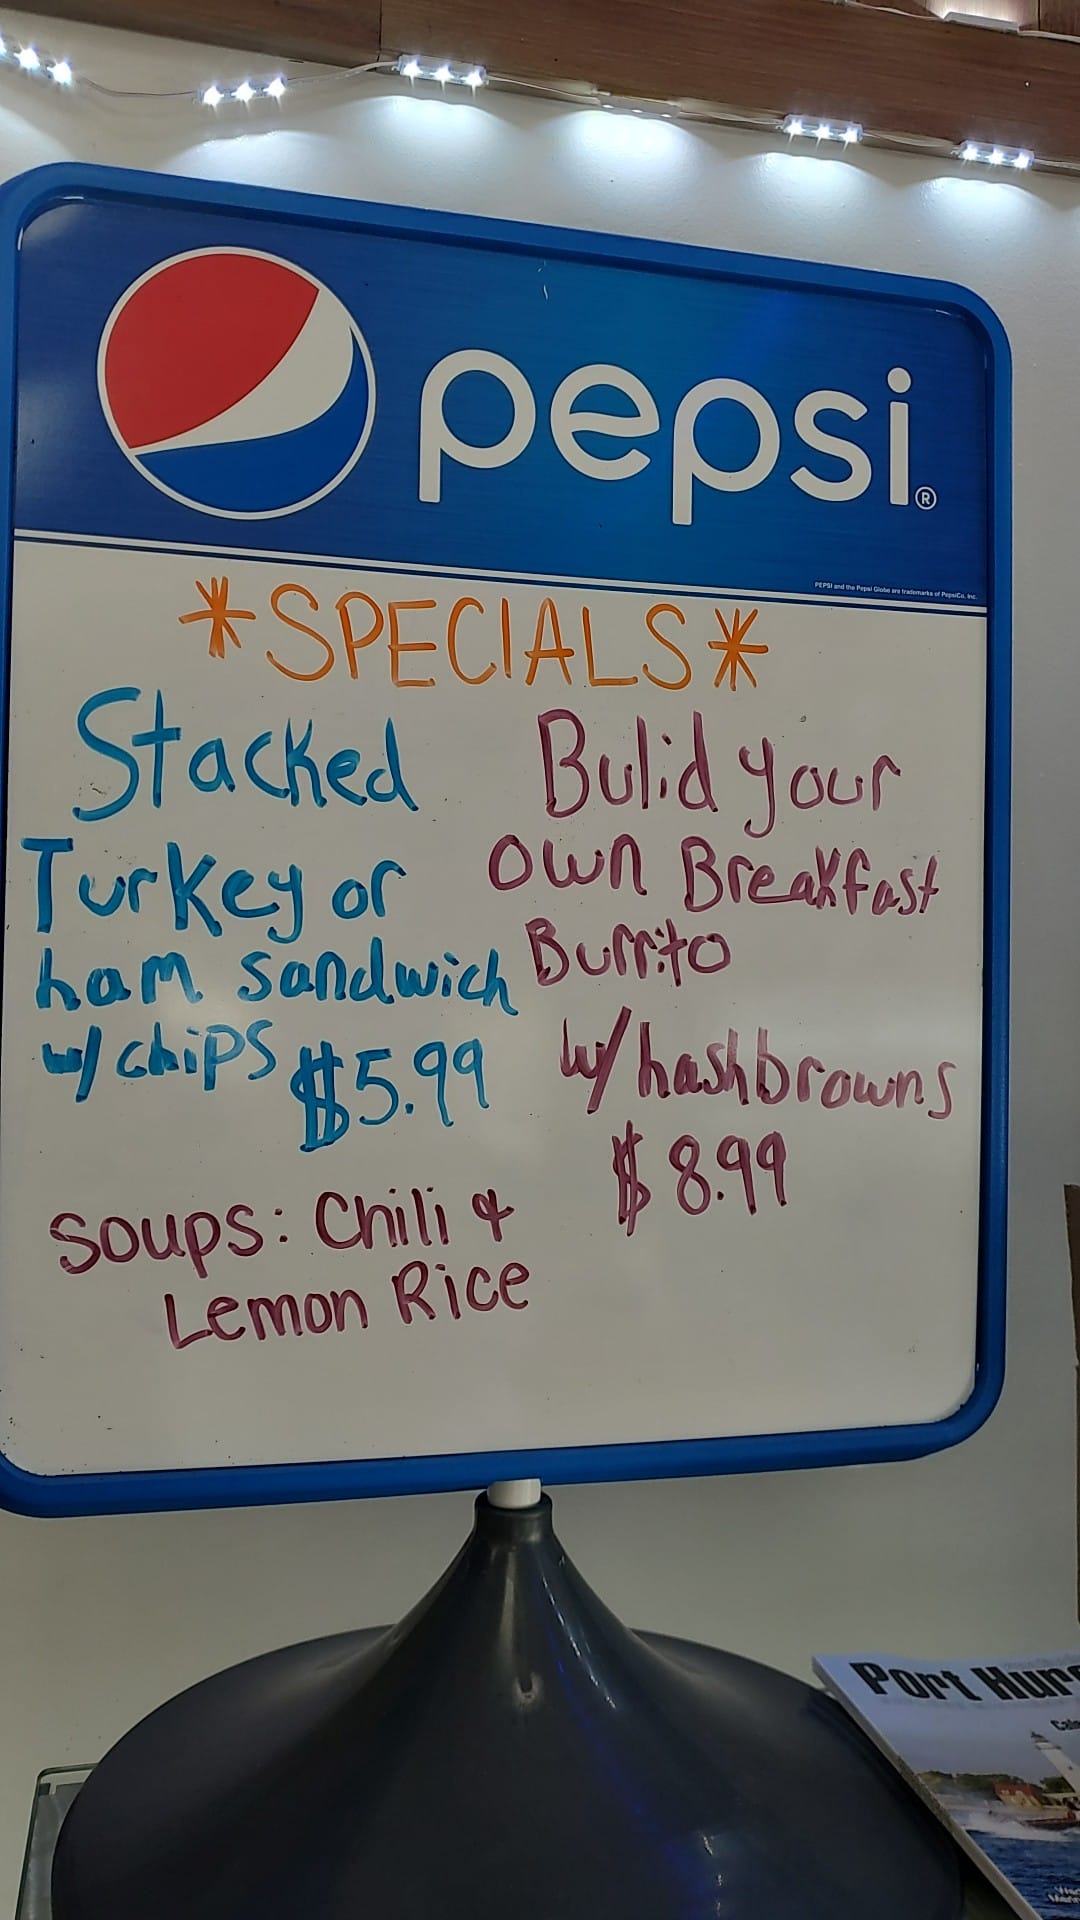 pepsi®
PEPSI and the Pepsi Globe are trademarks of PepsiCo, Inc.
*SPECIALS*
Stacked
Turkey or
ham sandwich
w/ chips $5.99
Bulid your
own Breakfast
Burrito
w/ hashbrowns
$8.99
Soups: Chili &
Lemon Rice
Port Huro